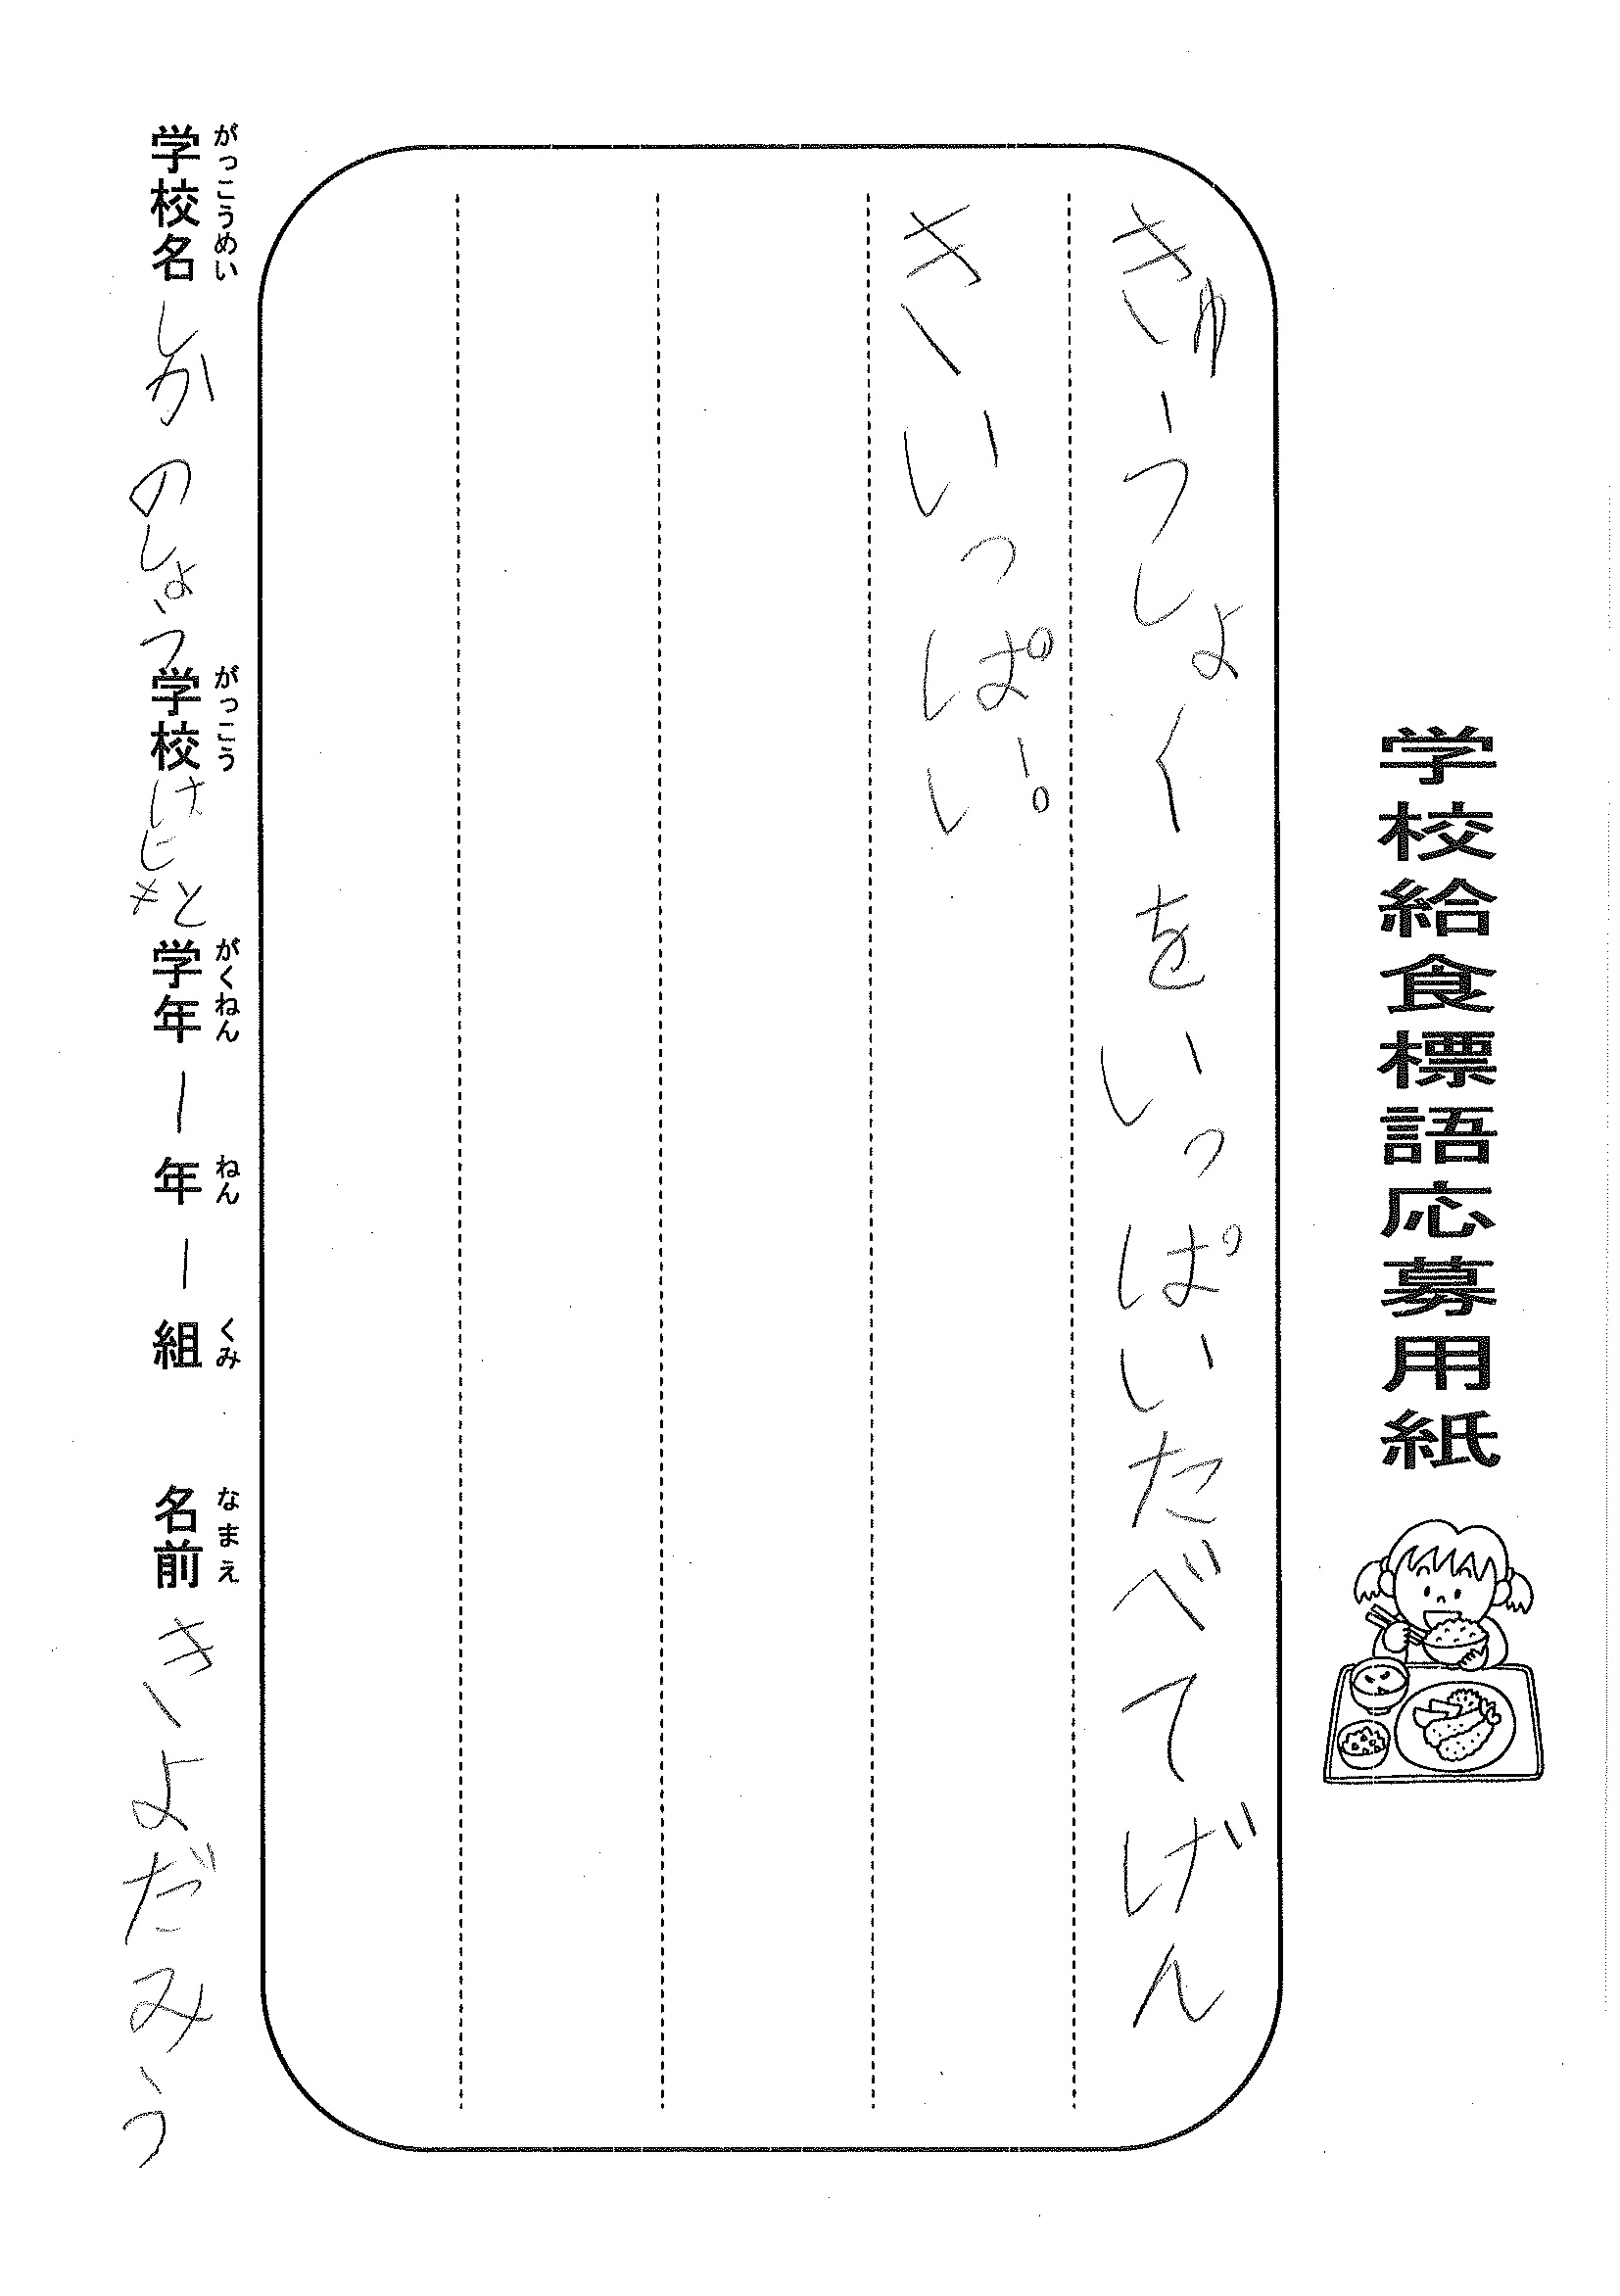 学校給食標語応募用紙
きゅうしょくをいっぱいたべてげん
きいっぱい。
がっこうめい がっこう がくねん ねん くみ なまえ
学校名 しかのしょう 学校 学年 1 年 1 組 名前 きよだみう